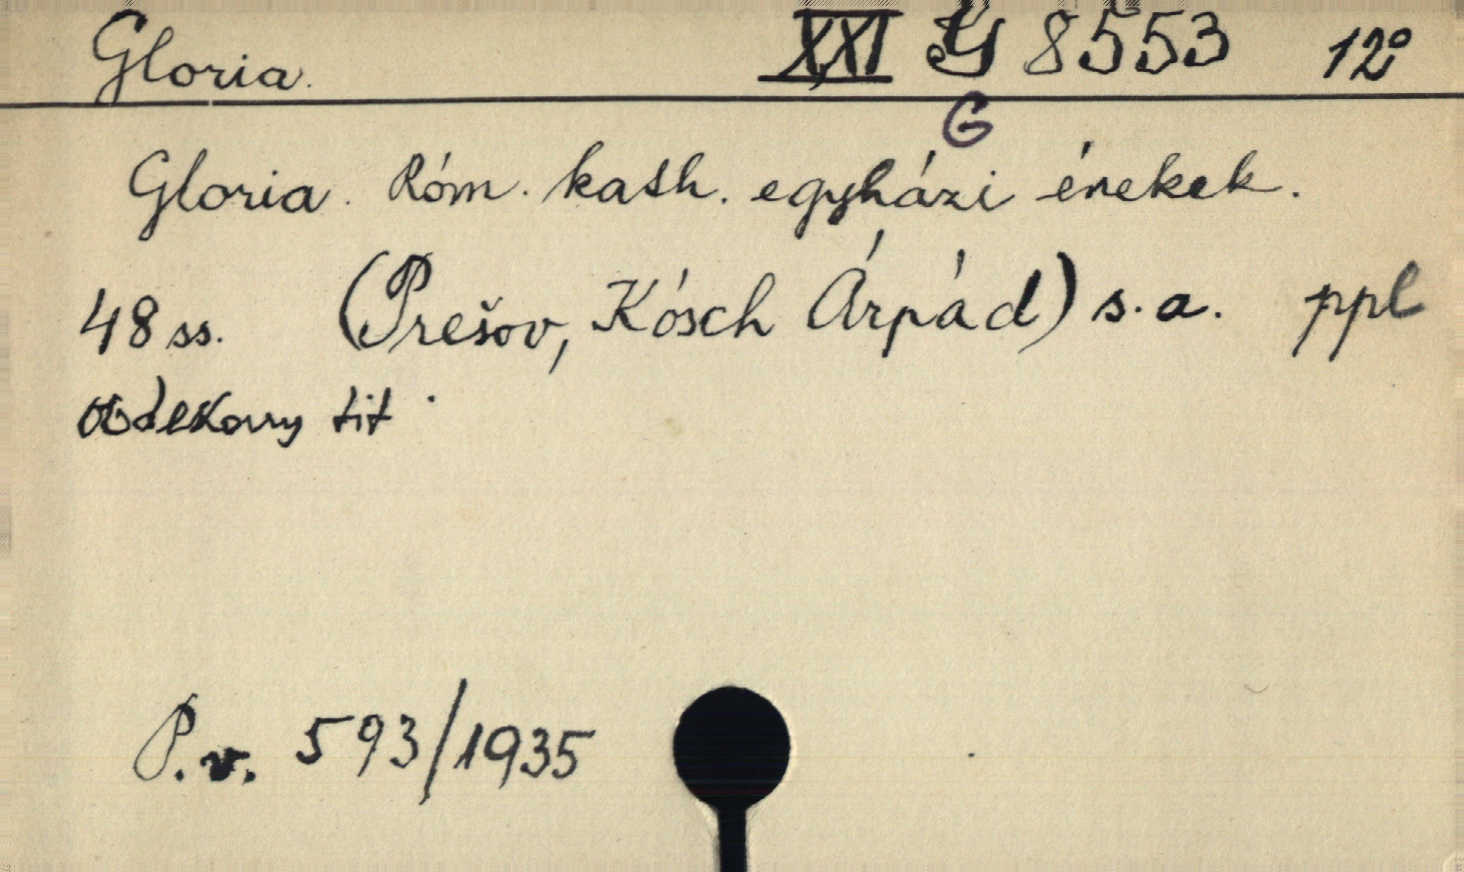 Gloria. XXI G 8553 12°
G
Gloria. Róm. kath. egyházi énekek.
48 ss. (Prešov, Kósch Árpád) s. a. ppl
Obálkovy tit.
P. v. 593/1935